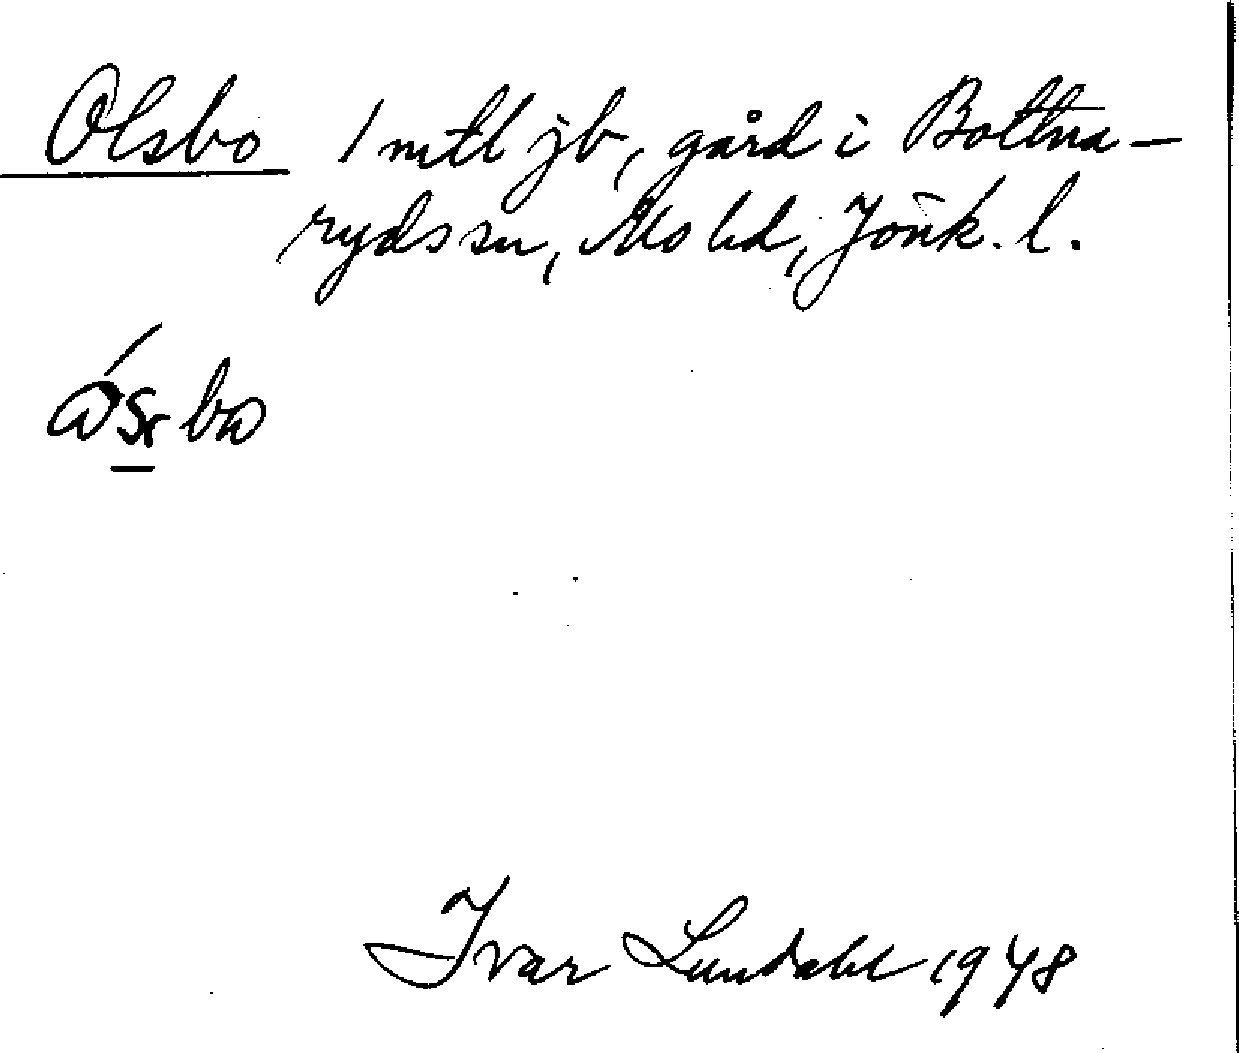 Olsbo 1 mtl jb, gård i Bottna-
rydssn, Mo hd, Jönk. l.
Ivar Lundahl 1948